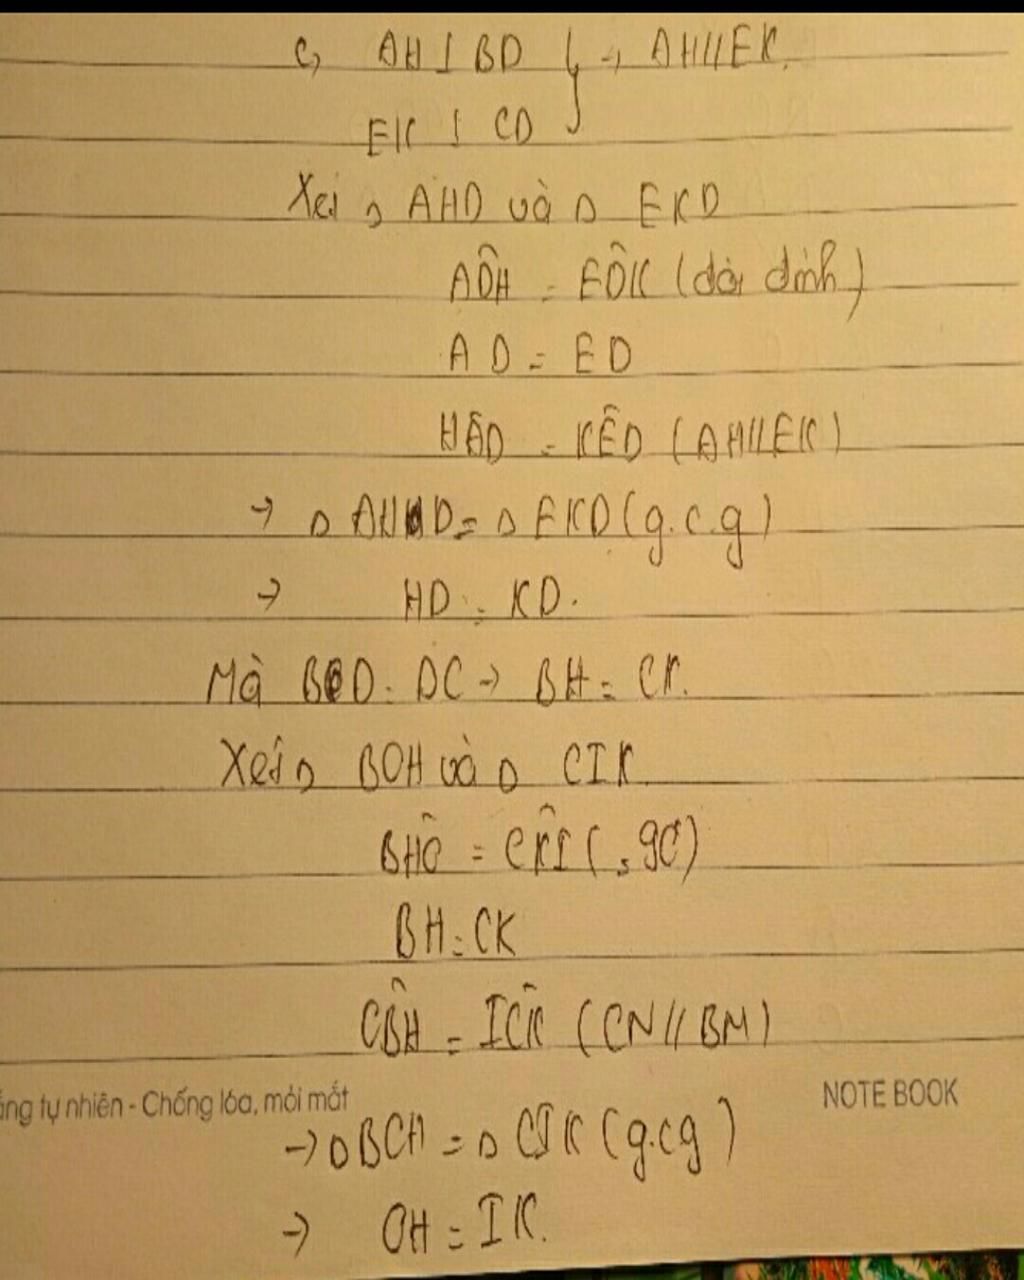 c, AH ⊥ BD } → AH // EK.
EK ⊥ CD
Xét Δ AHD và Δ EKD
AD̂H = ED̂K (đối đỉnh)
AD = ED
HÂD = KÊD (AH // EK)
→ Δ AHD = Δ EKD (g.c.g)
→ HD = KD.
Mà BD = DC → BH = CK.
Xét Δ BOH và Δ CIK
BĤO = CK̂I (= 90°)
BH = CK
OB̂H = IĈK (CN // BM)
ắng tự nhiên - Chống lóa, mỏi mắt NOTE BOOK
→ Δ BOH = Δ CIK (g.cg)
→ OH = IK.